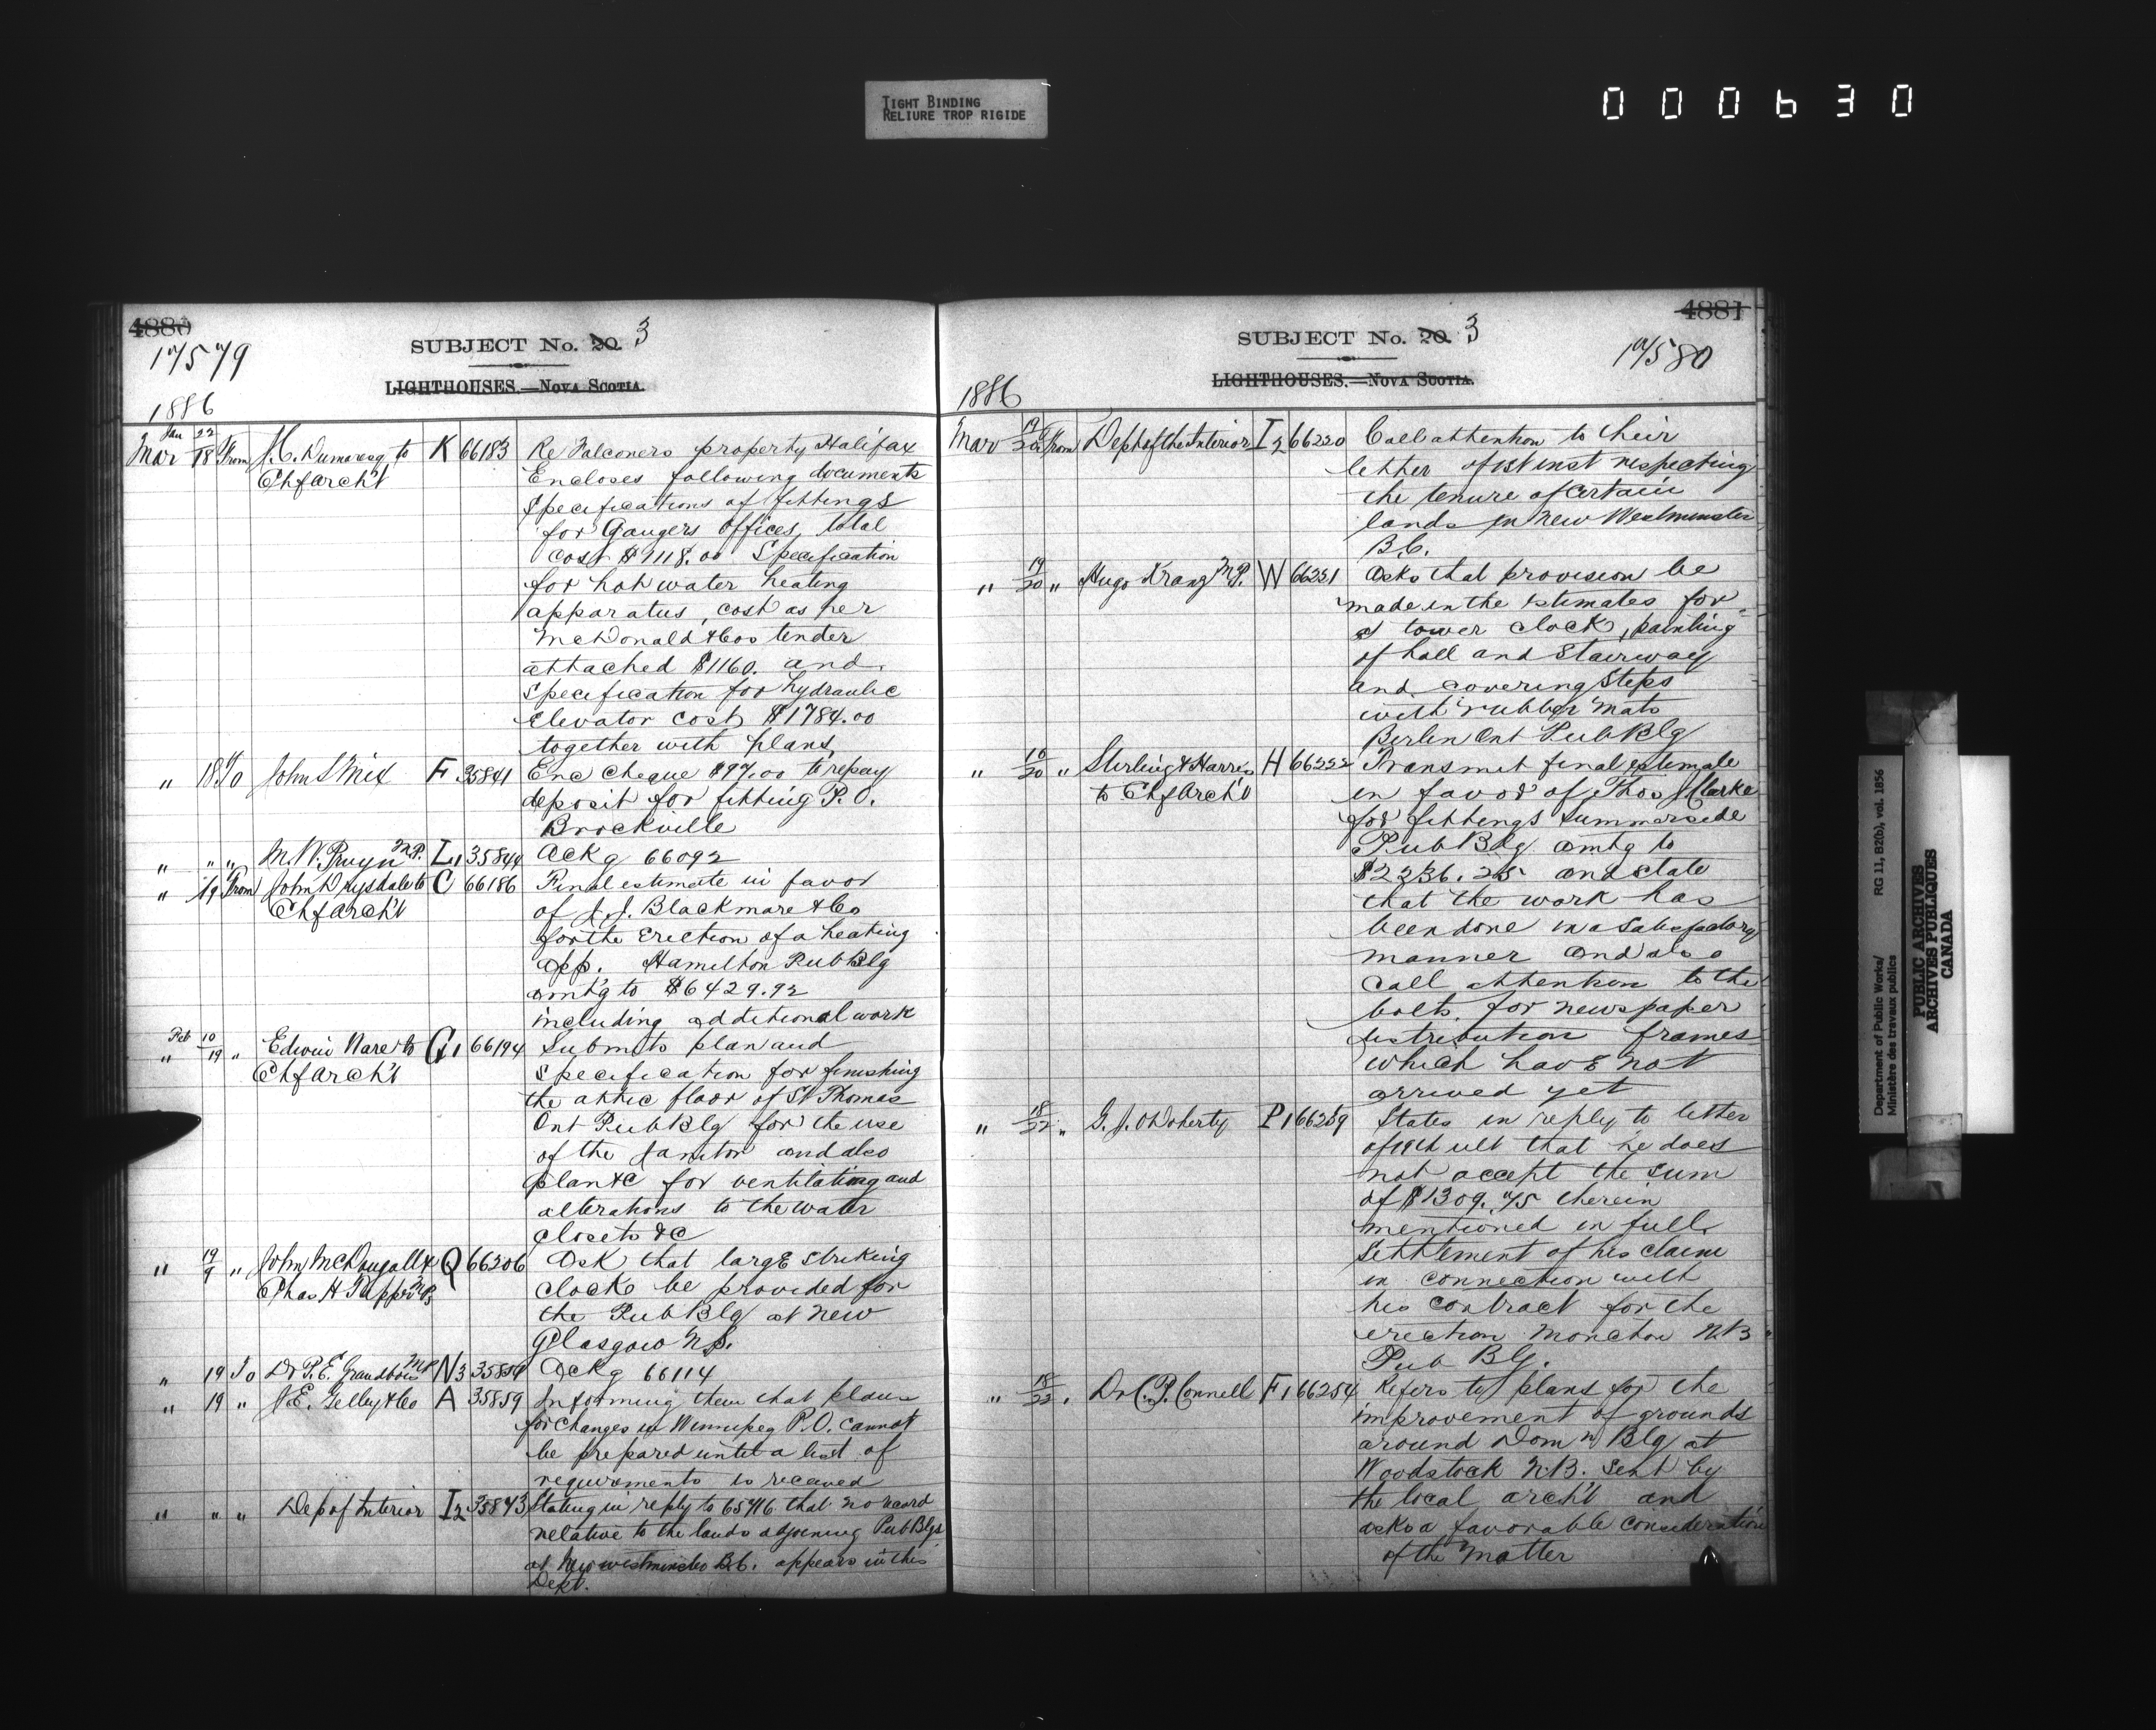 TIGHT BINDING
RELIURE TROP RIGIDE
000630
4880
17579
SUBJECT No. 20. 3
LIGHTHOUSES.—NOVA SCOTIA.
1886
Jan 22
Mar 18 From J.C. Dumaresq to K 66183 Re Falconers property Halifax
Chf Arch't Encloses following documents
Specifications of fittings
for Gaugers Offices, total
cost $1118.00 Specification
for hot water heating
apparatus, cost as per
McDonald & Cos tender
attached $1160. and
specification for hydraulic
Elevator cost $1784.00
together with plans
" 18 To John S Mix F 35841 Enc cheque $97.00 to repay
deposit for fitting P.O.
Brockville
" " " M.W. Pruyn M.P. L1 35844 Ackg 66092
" 19 From John Drysdale to C 66186 Final estimate in favor
Chf Arch't of J.J. Blackmore & Co
for the Erection of a heating
app. Hamilton Pub Blg
amt'g to $6429.92
including additional work
Feb 10
" 19 " Edwin Ware to G1 66194 Submits plan and
Chf Arch't specification for finishing
the attic floor of St Thomas
Ont Pub Blg for the use
of the Janitor and also
plan &c for ventilating and
alterations to the water
closets &c
" 19/9 " John McDougall & Q 66206 Ask that large striking
Chas H Tupper MPs clock be provided for
the Pub Blg at New
Glasgow N.S.
" 19 To Dr P.E. Grandbois MP N3 35854 Ackg 66114
" 19 " J.E. Gelley & Co A 35859 Informing them that plans
for changes in Winnipeg P.O. cannot
be prepared until a list of
requirements is received
" " " Dep of Interior I2 35843 Stating in reply to 65416 that no record
relative to the lands adjoining Pub Blgs
at New Westminster B.C. appears in this
Dept.
4881
SUBJECT No. 20. 3
17580
LIGHTHOUSES.—NOVA SCOTIA.
1886
Mar 19/20 From Dept of the Interior I2 66220 Call attention to their
letter of 1st inst respecting
the tenure of certain
lands in New Westminster
B.C.
" 19/20 " Hugo Kranz M.P. W 66221 Asks that provision be
made in the Estimates for
a tower clock, painting
of hall and stairway
and covering steps
with rubber mats
Berlin Ont Pub Blg
" 16/20 " Sterling & Harris H 66222 Transmit final estimate
to Chf Arch't in favor of Thos J Clarke
for fittings Summerside
Pub Blg amtg to
$2236.25 and state
that the work has
been done in a satisfactory
manner and also
call attention to the
bolts for newspaper
distribution frames
which have not
arrived yet
" 18/22 " G.J. O'Doherty P1 66259 States in reply to letter
of 19th ult that he does
not accept the sum
of $1309.75 therein
mentioned in full
settlement of his claim
in connection with
his contract for the
erection Moncton N.B
Pub Blg.
" 18/22 " Dr C.P. Connell F1 66254 Refers to plans for the
improvement of grounds
around Domn Blg at
Woodstock N.B. sent by
the local arch't and
asks a favorable consideration
of the matter
Department of Public Works/ RG 11, B2(b), vol. 1856
Ministère des travaux publics
PUBLIC ARCHIVES
ARCHIVES PUBLIQUES
CANADA